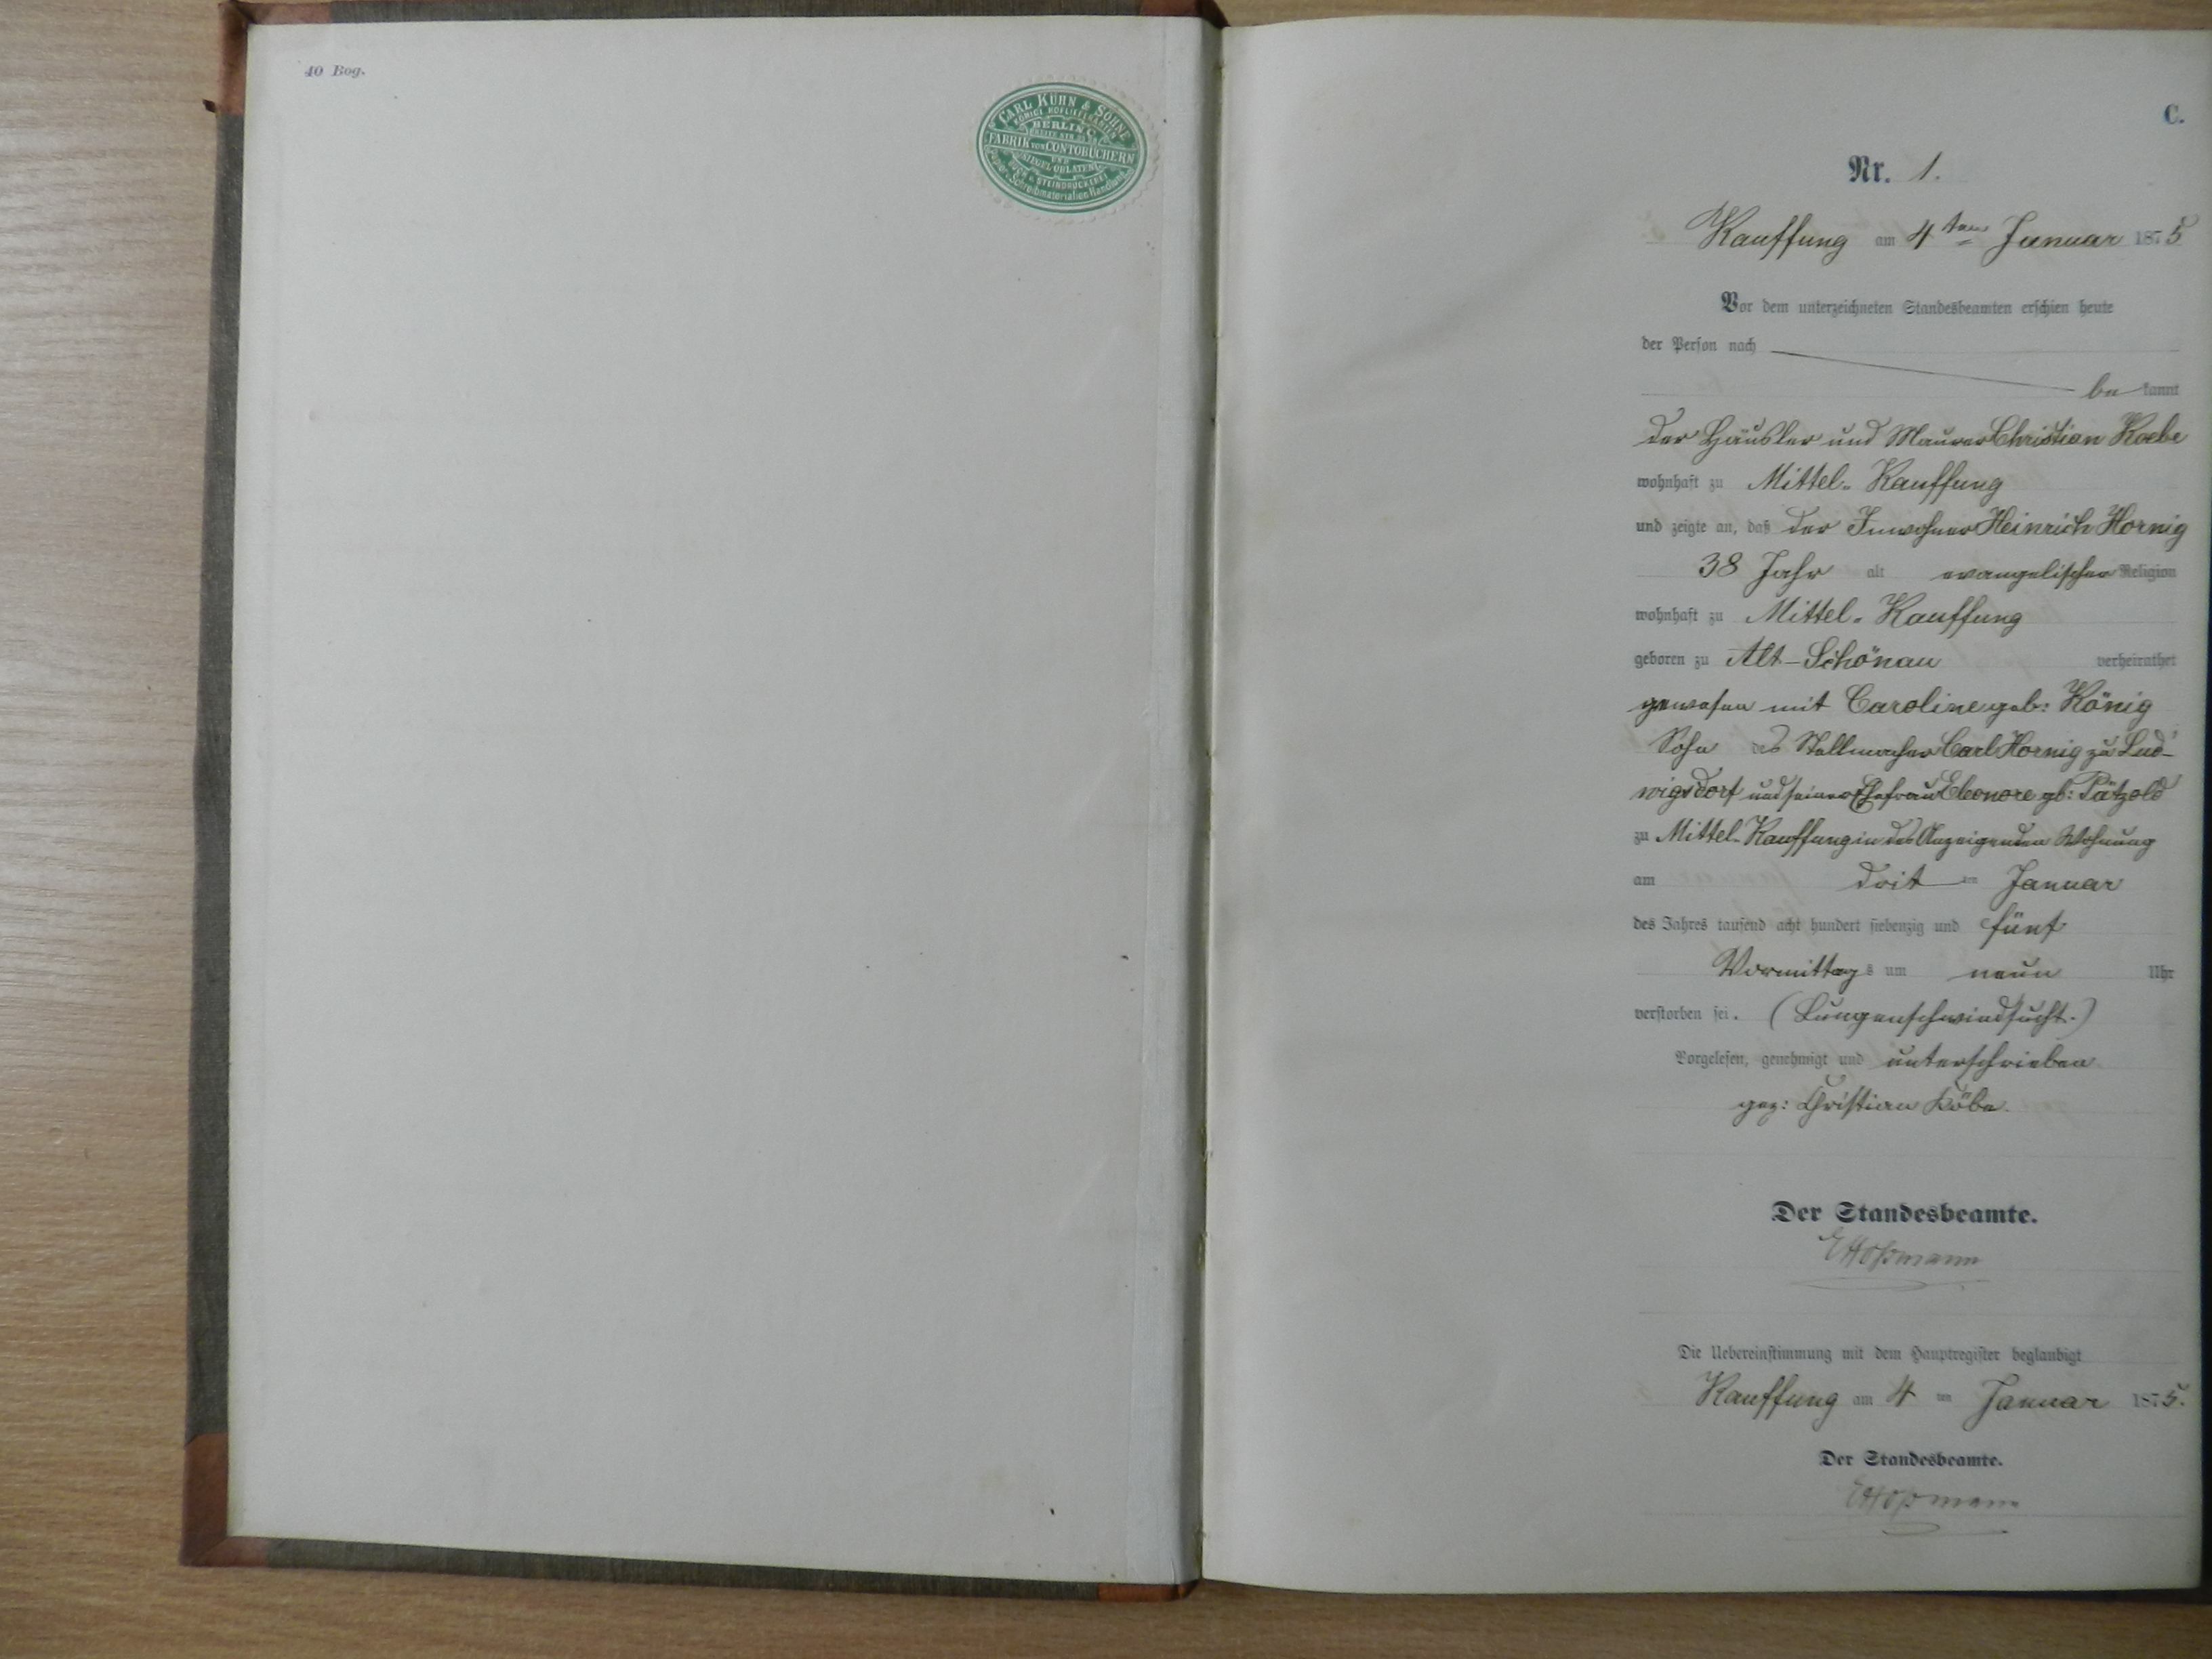 40 Bog.
CARL KÜHN & SÖHNE
KÖNIGL. HOFLIEFERANTEN
BERLIN C.
BREITE STR.
FABRIK VON CONTOBÜCHERN
UND
SIEGEL-OBLATEN
BUCH & STEINDRUCKEREI
Papier & Schreibmaterialien Handlung
C.
Nr. 1.
Kauffung am 4ten Januar 1875
Vor dem unterzeichneten Standesbeamten erschien heute
der Person nach
be kannt
der Häusler und Maurer Christian Koebe
wohnhaft zu Mittel-Kauffung
und zeigte an, daß der Inwohner Heinrich Hornig
38 Jahr alt evangelischer Religion
wohnhaft zu Mittel-Kauffung
geboren zu Alt-Schönau verheirathet
gewesen mit Caroline geb: König
Sohn des Stellmacher Carl Hornig zu Lud-
wigsdorf und seiner Ehefrau Eleonore gb: Pätzold
zu Mittel-Kauffung in des Anzeigenden Wohnung
am drit ten Januar
des Jahres tausend acht hundert siebenzig und fünf
Vormittags um neun Uhr
verstorben sei. (Lungenschwindsucht.)
Vorgelesen, genehmigt und unterschrieben
gez: Christian Köbe.
Der Standesbeamte.
Die Uebereinstimmung mit dem Hauptregister beglaubigt
Kauffung am 4 ten Januar 1875.
Der Standesbeamte.